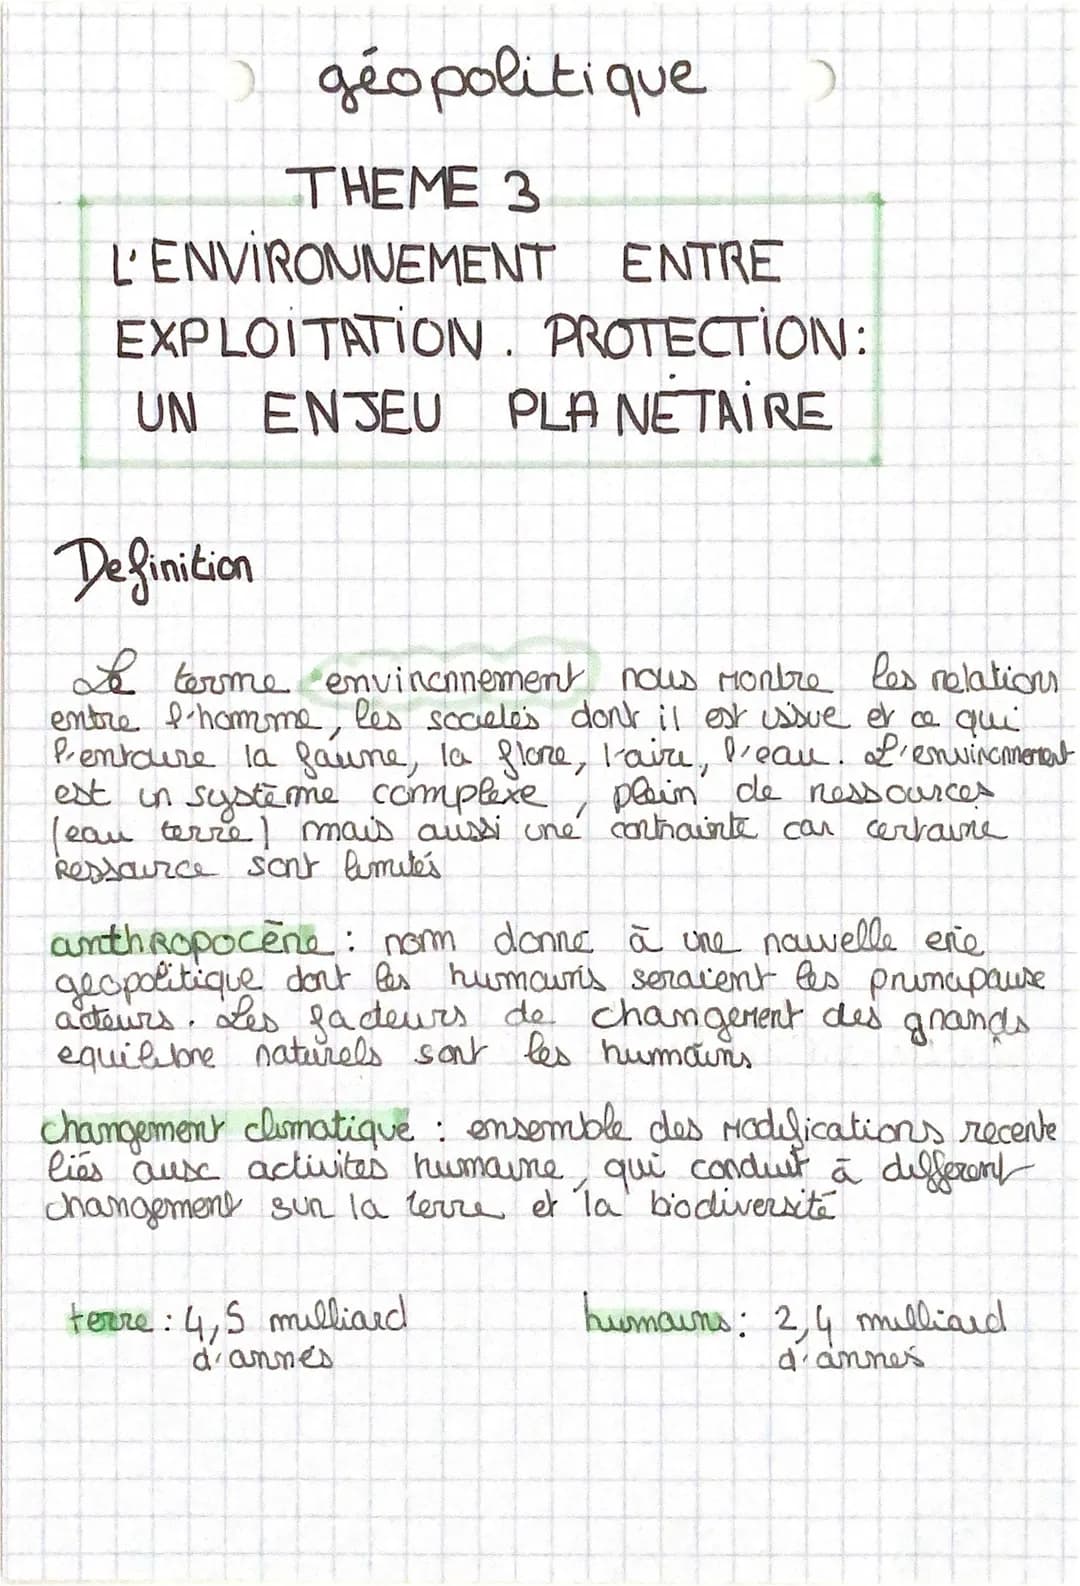 géopolitique
THEME 3
L'ENVIRONNEMENT ENTRE
EXPLOITATION. PROTECTION:
UN ENJEU PLANÉTAIRE
Definition
Le terme environnement nous montre les relations
entre l'homme, les societés dont il est issue et ce qui
l'entoure la faune, la flore, l'aire, l'eau. L'environnement
est un système complexe, plein de ressources
(eau terre) mais aussi une contrainte car certaine
Ressource sont limités
anthropocène : nom donné à une nouvelle erie
geopolitique dont les humains seraient les principause
acteurs. Les facteurs de changement des grands
equilibre naturels sont les humains
changement climatique : ensemble des modifications recente
liés ausc activités humaine, qui conduit à different
changement sur la terre et la biodiversité
terre : 4,5 milliard
d'annés
humains : 2,4 milliard
d'annes